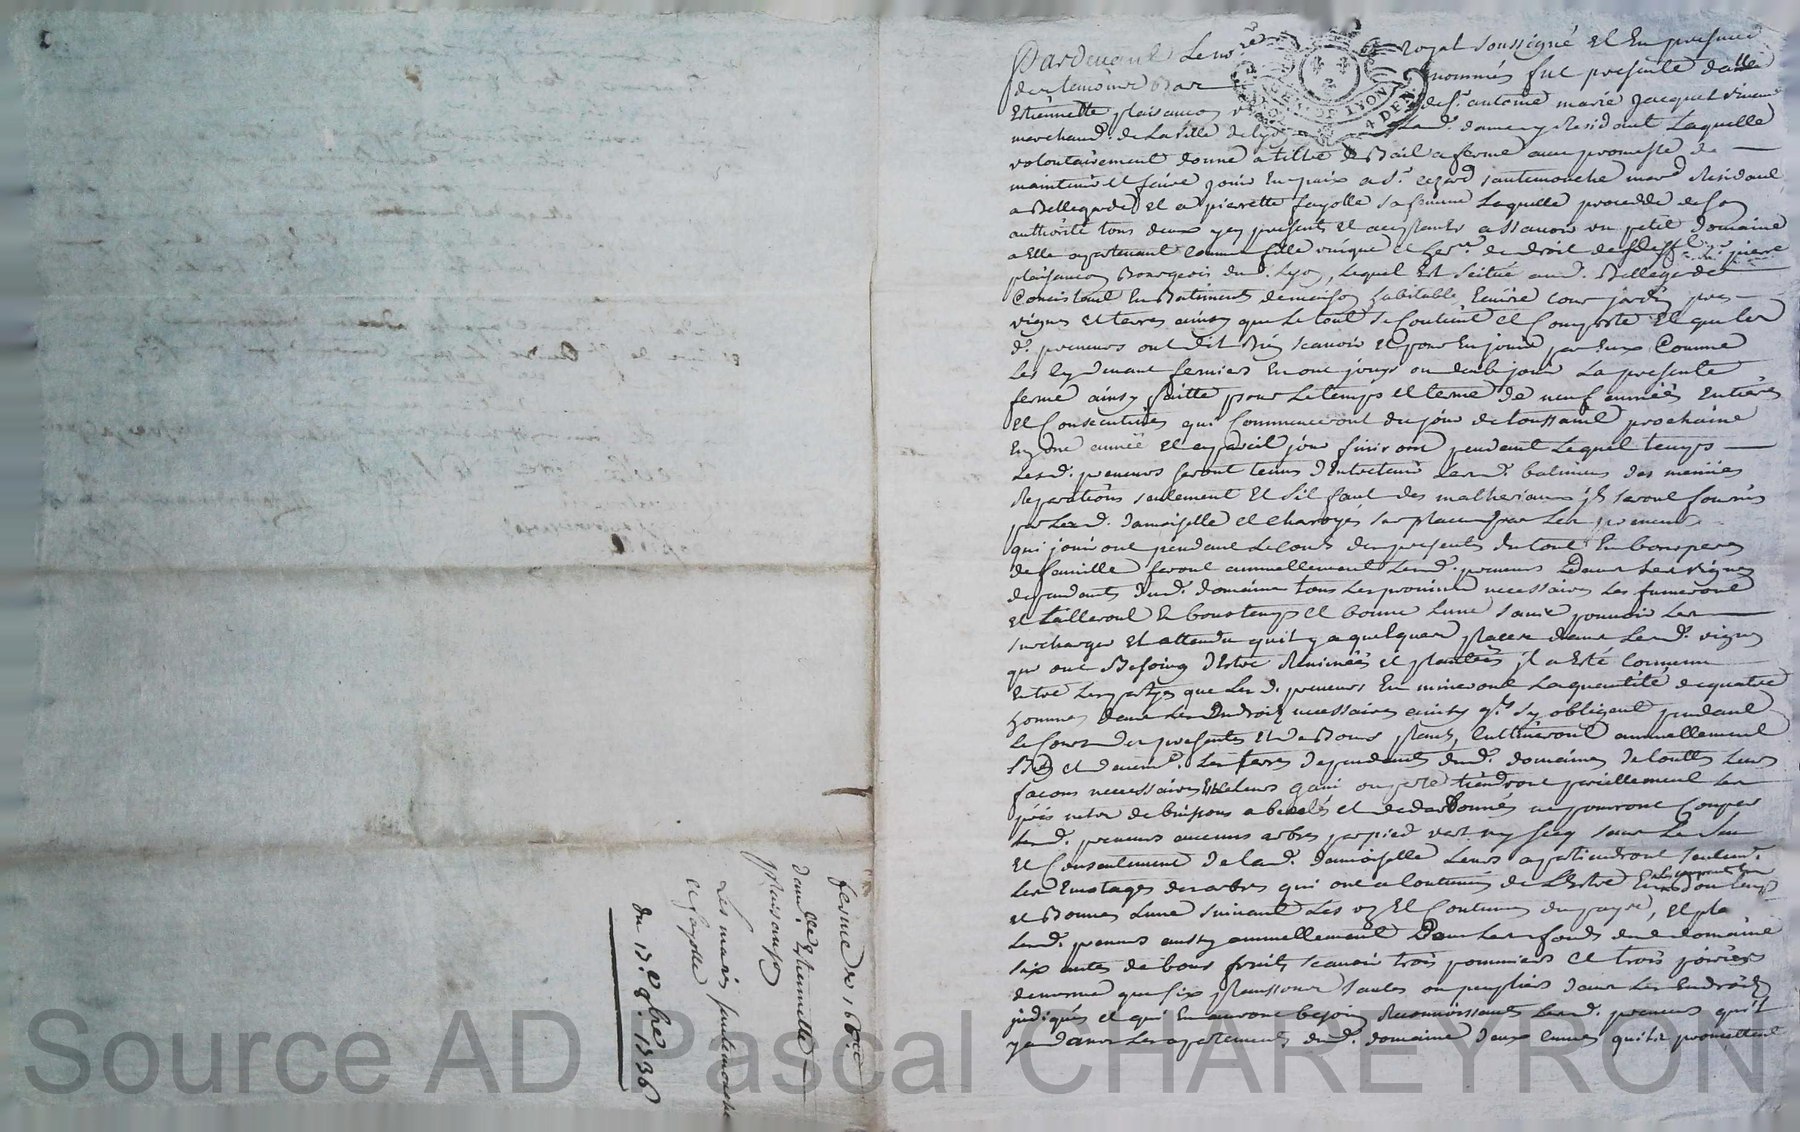 Pardevant le no.re royal soussigné et en presence
des temoins bas nommés fut presente dalle
Estiennette plaisancon de Sr. antoine marie Jacquet vivant
marchand de la ville de Lyon aud. damery Residant Laquelle
volontairement donne a tiltre de Bail a ferme avec promesse de
maintenir et faire jouir en paix a Sr. cezard santemouche mard. Residant
a Bellegarde et a pierrette fayolle sa femme Laquelle procedde de son
authorité tous deux icy presents et acceptants a scavoir un petit domaine
a Elle apartenant comme fille unique et her.re de droit de pierre
plaisancon Bourgeois dud. Lyon, lequel est scitué aud. Bellegarde
Concistant En Batiments de maison habitable Ecuire cour jardin pres
vignes et terres ainsy que le tout se Contient et Comporte et que les
d. preneurs ont dit bien scavoir et pour en jouir par eux Comme
les cy devant fermiers en ont jouys ou deub jouir La presente
ferme ainsy faitte pour le temps et terme de neuf années entieres
et Consecutives qui Commenceront du jour de toussaint prochaine
En une année et a pareil jour finiront pendant lequel temps
lesd. preneurs seront tenus d'Entretenir lesd. batimens des menues
Reparations seulement et s'il faut des matheriaux ils seront fournis
par lad. damoiselle et charoyés sur place par les preneurs
qui jouiront pendant le cours des presents du tout En bons peres
de famille feront annuellement lesd. preneurs Dans les vignes
dependants dud. domaine tous les provins necessaires les fumeront
et tailleront En bons temps et bonne lune sans pouvoir les
surcharger et attendu qu'il y a quelques places dans lesd. vignes
qui ont Besoing d'Estre Reminées et plantées il a esté Convenu
Entre les parties que lesd. preneurs En mineront la quantité de quatre
hommes dans les Endroits necessaires ainsy qu'ils s'y obligent pendant
le Cours des presentes et de Bons plants, cultiveront annuellement
Bien et duem.t les terres dependants dud. domaine de touttes leurs
facons necessaires tiendront pareillement les
prés nets de buissons
lesd. preneurs aucuns arbres par pied vert ny secq sans le sceu
et Consentement de lad. damoiselle Leurs apartiendront seulem.t
les Emotages des arbres qui ont a Coutume de l'Estre
et Bonne Lune suivant les uz et Coutumes du pays,
lesd. preneurs aussy annuellement Dans les fonds dud. domaine
six antes de bons fruits scavoir trois pommiers et trois poiriers
de meme que six plansons saules ou peupliers dans les Endroits
jndiqués et qui En auront besoin Reconnoissants lesd. preneurs qu'il
y a dans les apartements dud. domaine deux cuves qu'ils promettent
ferme de
dam.lle Estiennette
plaisançon
Les mariés santemouche
et fayolle
du 13.e 8bre 1736
Source AD Pascal CHAREYRON